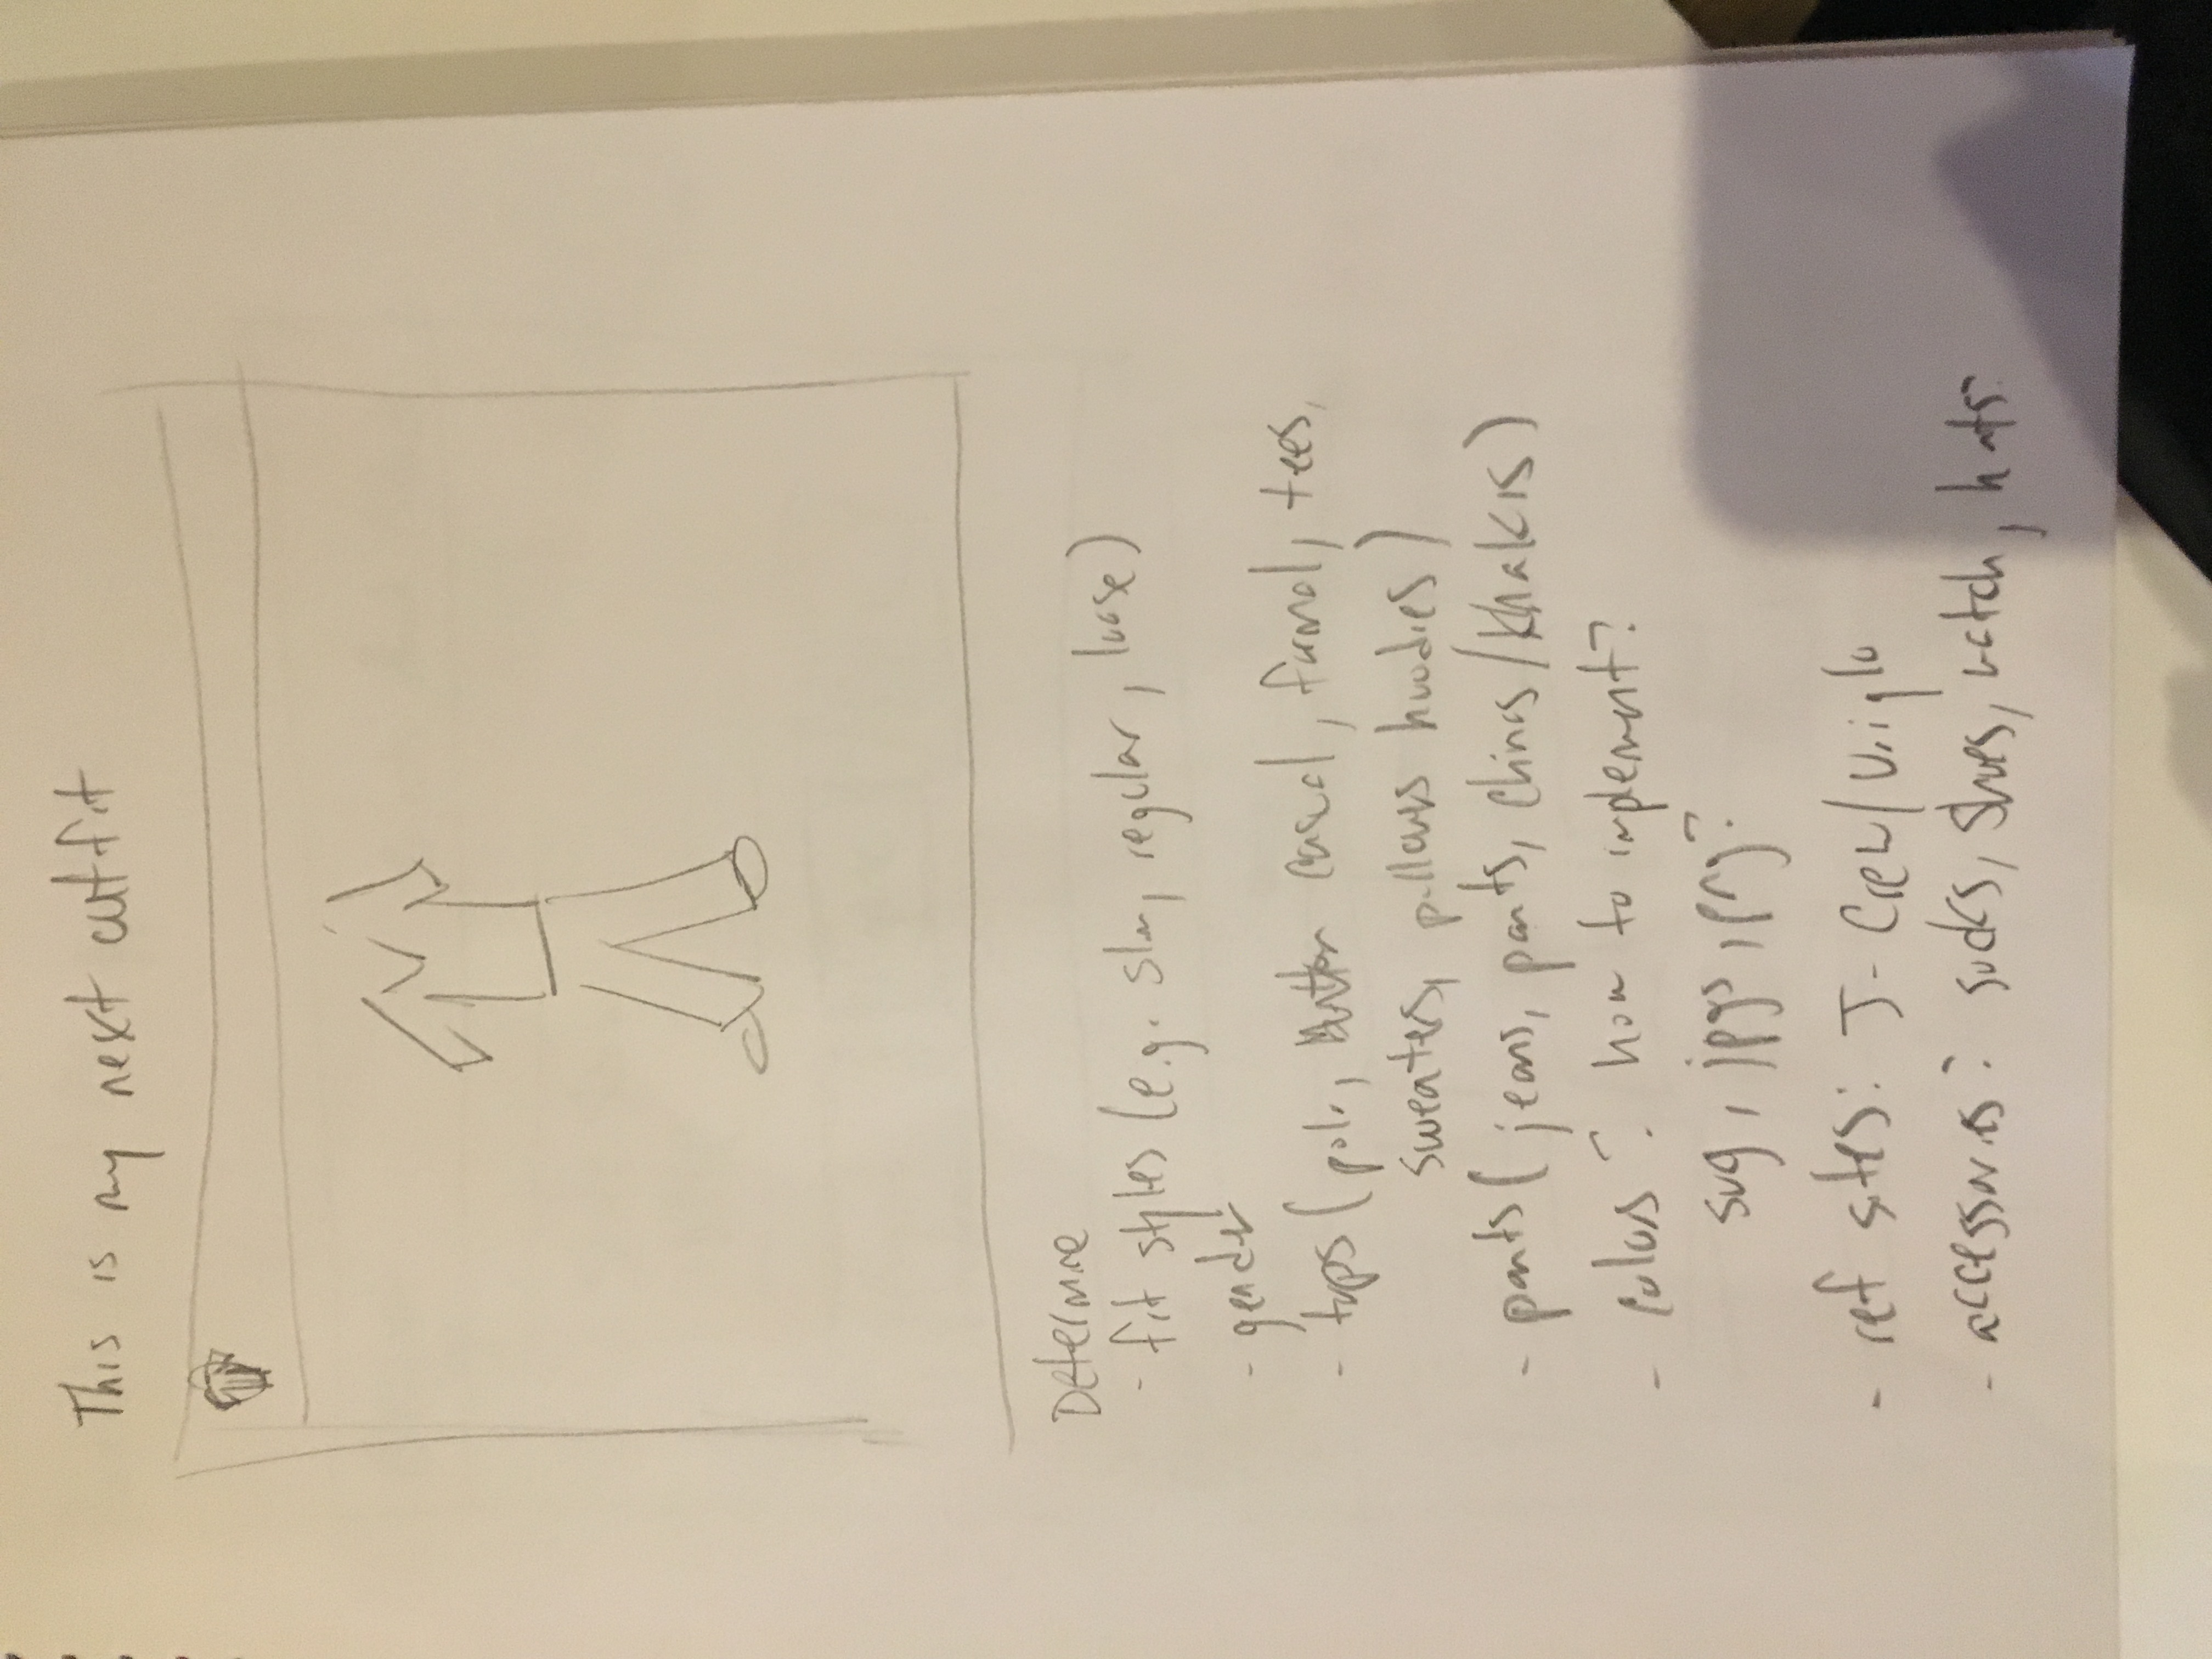 This is my next outfit
Determine
- fit styles (e.g. slim, regular, loose)
- gender
- tops (polo, casual, formal, tees,
sweaters, pullovers hoodies)
- pants (jeans, pants, chinos/khakis)
- colors? how to implement?
svg, jpgs, png?
- ref sites: J-Crew/Uniqlo
- accessories? socks, shoes, watch, hats?